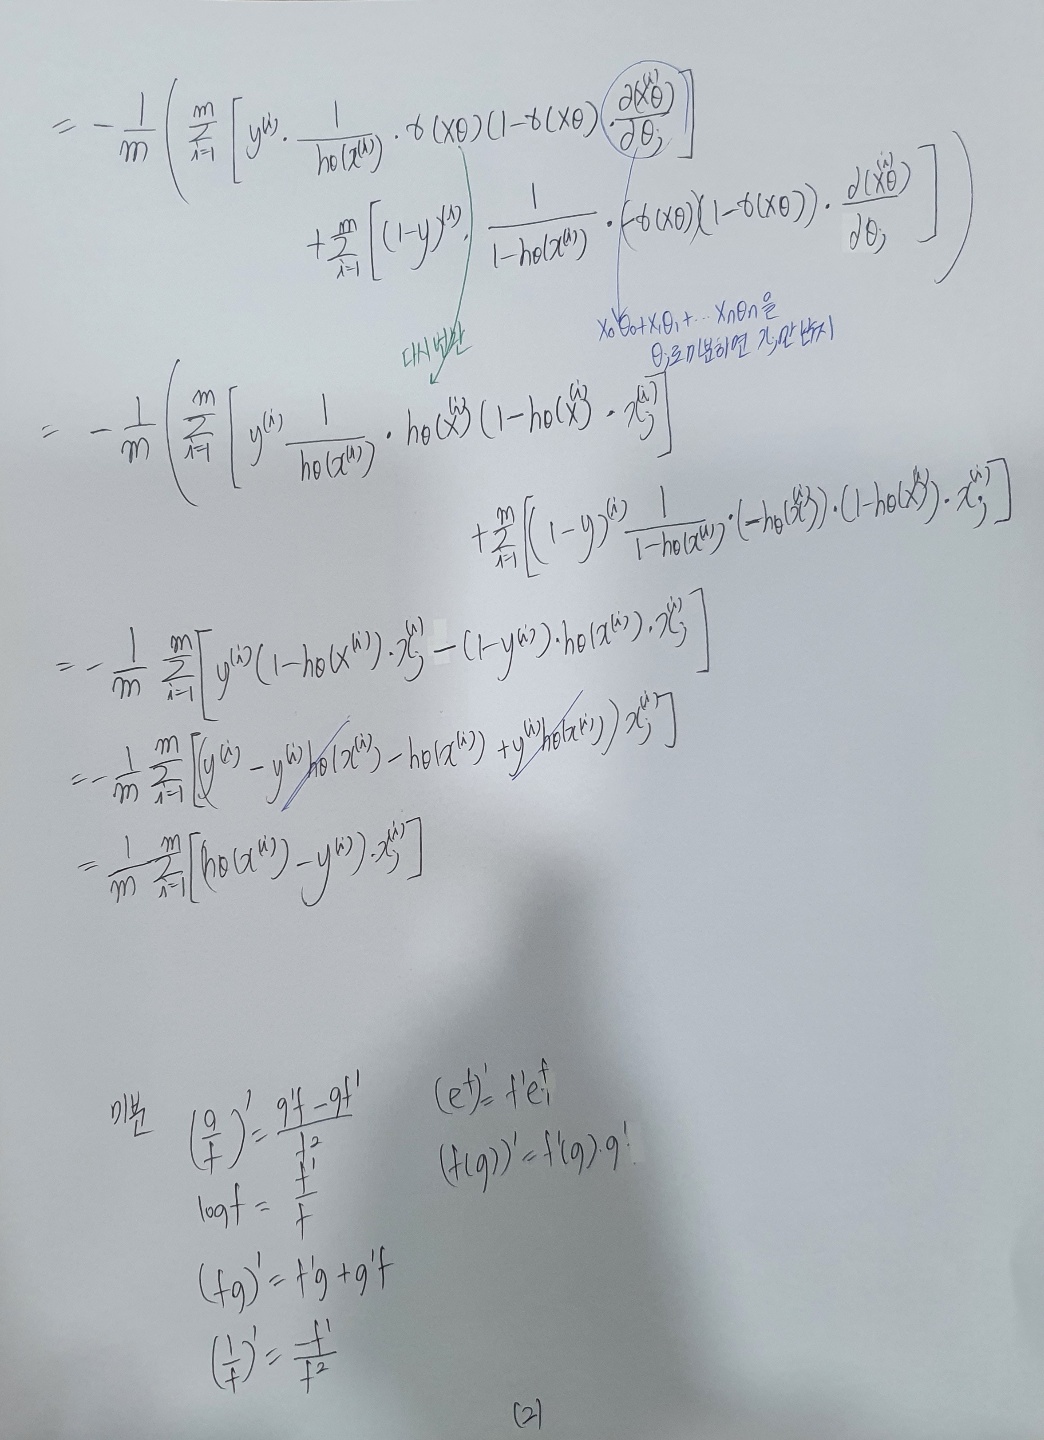 = -1/m ( Σ_{i=1}^{m} [ y^{(i)} · 1/hθ(x^{(i)}) · σ(xθ)(1-σ(xθ) · ∂(x^{(i)}θ)/∂θ_j ]
+ Σ_{i=1}^{m} [ (1-y)^{(i)} · 1/(1-hθ(x^{(i)})) · (-σ(xθ)(1-σ(xθ)) · ∂(x^{(i)}θ)/∂θ_j ] )
다시 변환
x₀θ₀+x₁θ₁+... xₙθₙ을
θ_j로 미분하면 x_j만 남지
= -1/m ( Σ_{i=1}^{m} [ y^{(i)} 1/hθ(x^{(i)}) · hθ(x^{(i)})(1-hθ(x^{(i)}) · x_j^{(i)} ]
+ Σ_{i=1}^{m} [ (1-y)^{(i)} 1/(1-hθ(x^{(i)})) · (-hθ(x^{(i)})) · (1-hθ(x^{(i)}) · x_j^{(i)} ]
= -1/m Σ_{i=1}^{m} [ y^{(i)}(1-hθ(x^{(i)}) · x_j^{(i)} - (1-y^{(i)}) · hθ(x^{(i)}) · x_j^{(i)} ]
= -1/m Σ_{i=1}^{m} [ (y^{(i)} - y^{(i)}hθ(x^{(i)}) - hθ(x^{(i)}) + y^{(i)}hθ(x^{(i)})) x_j^{(i)} ]
= 1/m Σ_{i=1}^{m} [ (hθ(x^{(i)}) - y^{(i)}) · x_j^{(i)} ]
미분 (g/f)' = (g'f - gf')/f²
(e^f)' = f'e^f
logf = f'/f
(f(g))' = f'(g)·g'
(fg)' = f'g + g'f
(1/f)' = -f'/f²
(2)